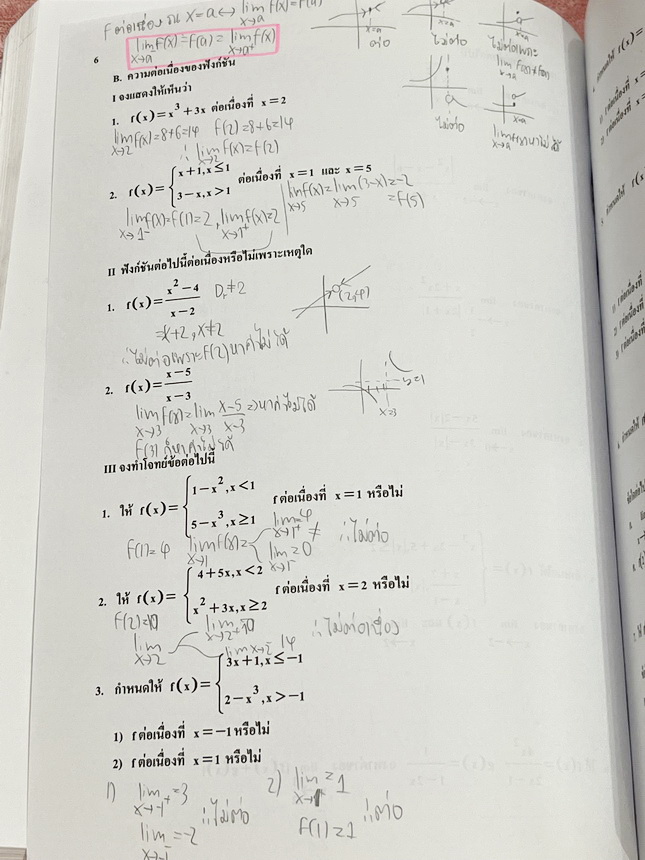 F ต่อเนื่อง ณ x=a ↔ lim f(x)=F(a)
x→a
lim f(x) = F(a) = lim f(x)
x→a⁻ x→a⁺
6
x=a
ต่อ
x=a
ไม่ต่อ
ไม่ต่อเพราะ
lim f(x) ≠ f(a)
x→a
a
ไม่ต่อ
x=a
lim f(x) หาไม่ได้
x→a
B. ความต่อเนื่องของฟังก์ชัน
I จงแสดงให้เห็นว่า
1. f(x) = x³ + 3x ต่อเนื่องที่ x = 2
lim f(x)=8+6=14 f(2)=8+6=14
x→2
∴ lim f(x)=f(2)
x→2
2. f(x) = { x+1, x ≤ 1
3−x, x > 1 ต่อเนื่องที่ x = 1 และ x = 5
lim f(x)=lim (3-x)=-2
x→5 x→5 =f(5)
lim f(x)=f(1)=2, lim f(x)=2
x→1⁻ x→1⁺
II ฟังก์ชันต่อไปนี้ต่อเนื่องหรือไม่เพราะเหตุใด
1. f(x) = (x²−4)/(x−2) D_f ≠2
(2,4)
=x+2, x≠2
∴ไม่ต่อเพราะ f(2) หาค่าไม่ได้
2. f(x) = (x−5)/(x−3)
y=1
x=3
lim f(x)=lim (x-5)/(x-3) =หาค่าไม่ได้
x→3 x→3
f(3) ก็หาค่าไม่ได้
III จงทำโจทย์ข้อต่อไปนี้
1. ให้ f(x) = { 1−x², x < 1
5−x³, x ≥ 1 f ต่อเนื่องที่ x = 1 หรือไม่
f(1)=4 lim f(x)=
x→1
lim=4
x→1⁺
lim=0
x→1⁻
≠ ∴ไม่ต่อ
2. ให้ f(x) = { 4+5x, x < 2
x²+3x, x ≥ 2 f ต่อเนื่องที่ x = 2 หรือไม่
f(2)=10
lim
x→2
lim =10
x→2⁺
lim x→2⁻ 14
∴ไม่ต่อเนื่อง
3. กำหนดให้ f(x) = { 3x+1, x ≤ −1
2−x³, x > −1
1) f ต่อเนื่องที่ x = −1 หรือไม่
2) f ต่อเนื่องที่ x = 1 หรือไม่
1) lim =3
x→-1⁺
lim =-2
x→-1⁻
∴ไม่ต่อ
2) lim =1
x→1
f(1)=1
∴ต่อ